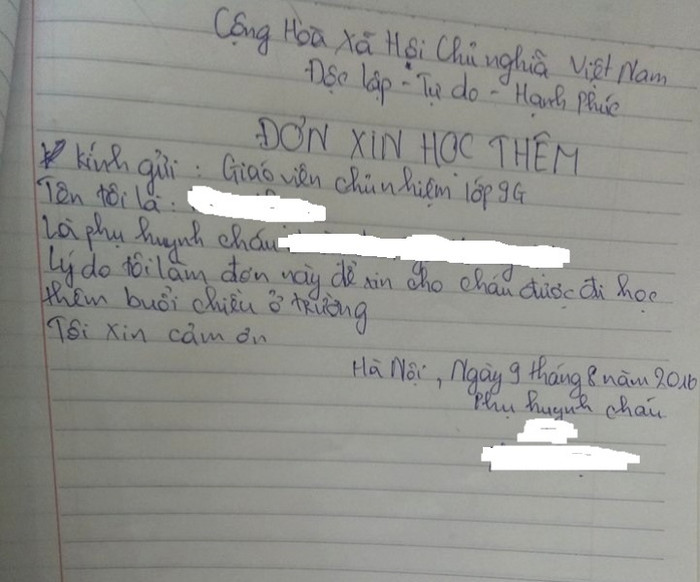 Cộng Hoà Xã Hội Chủ nghĩa Việt Nam
Độc lập - Tự do - Hạnh phúc
ĐƠN XIN HỌC THÊM
Kính gửi : Giáo viên chủ nhiệm lớp 9G
Tên tôi là :
Là phụ huynh cháu
Lý do tôi làm đơn này để xin cho cháu được đi học
thêm buổi chiều ở trường
Tôi xin cảm ơn
Hà Nội, Ngày 9 tháng 8 năm 2016
Phụ huynh cháu